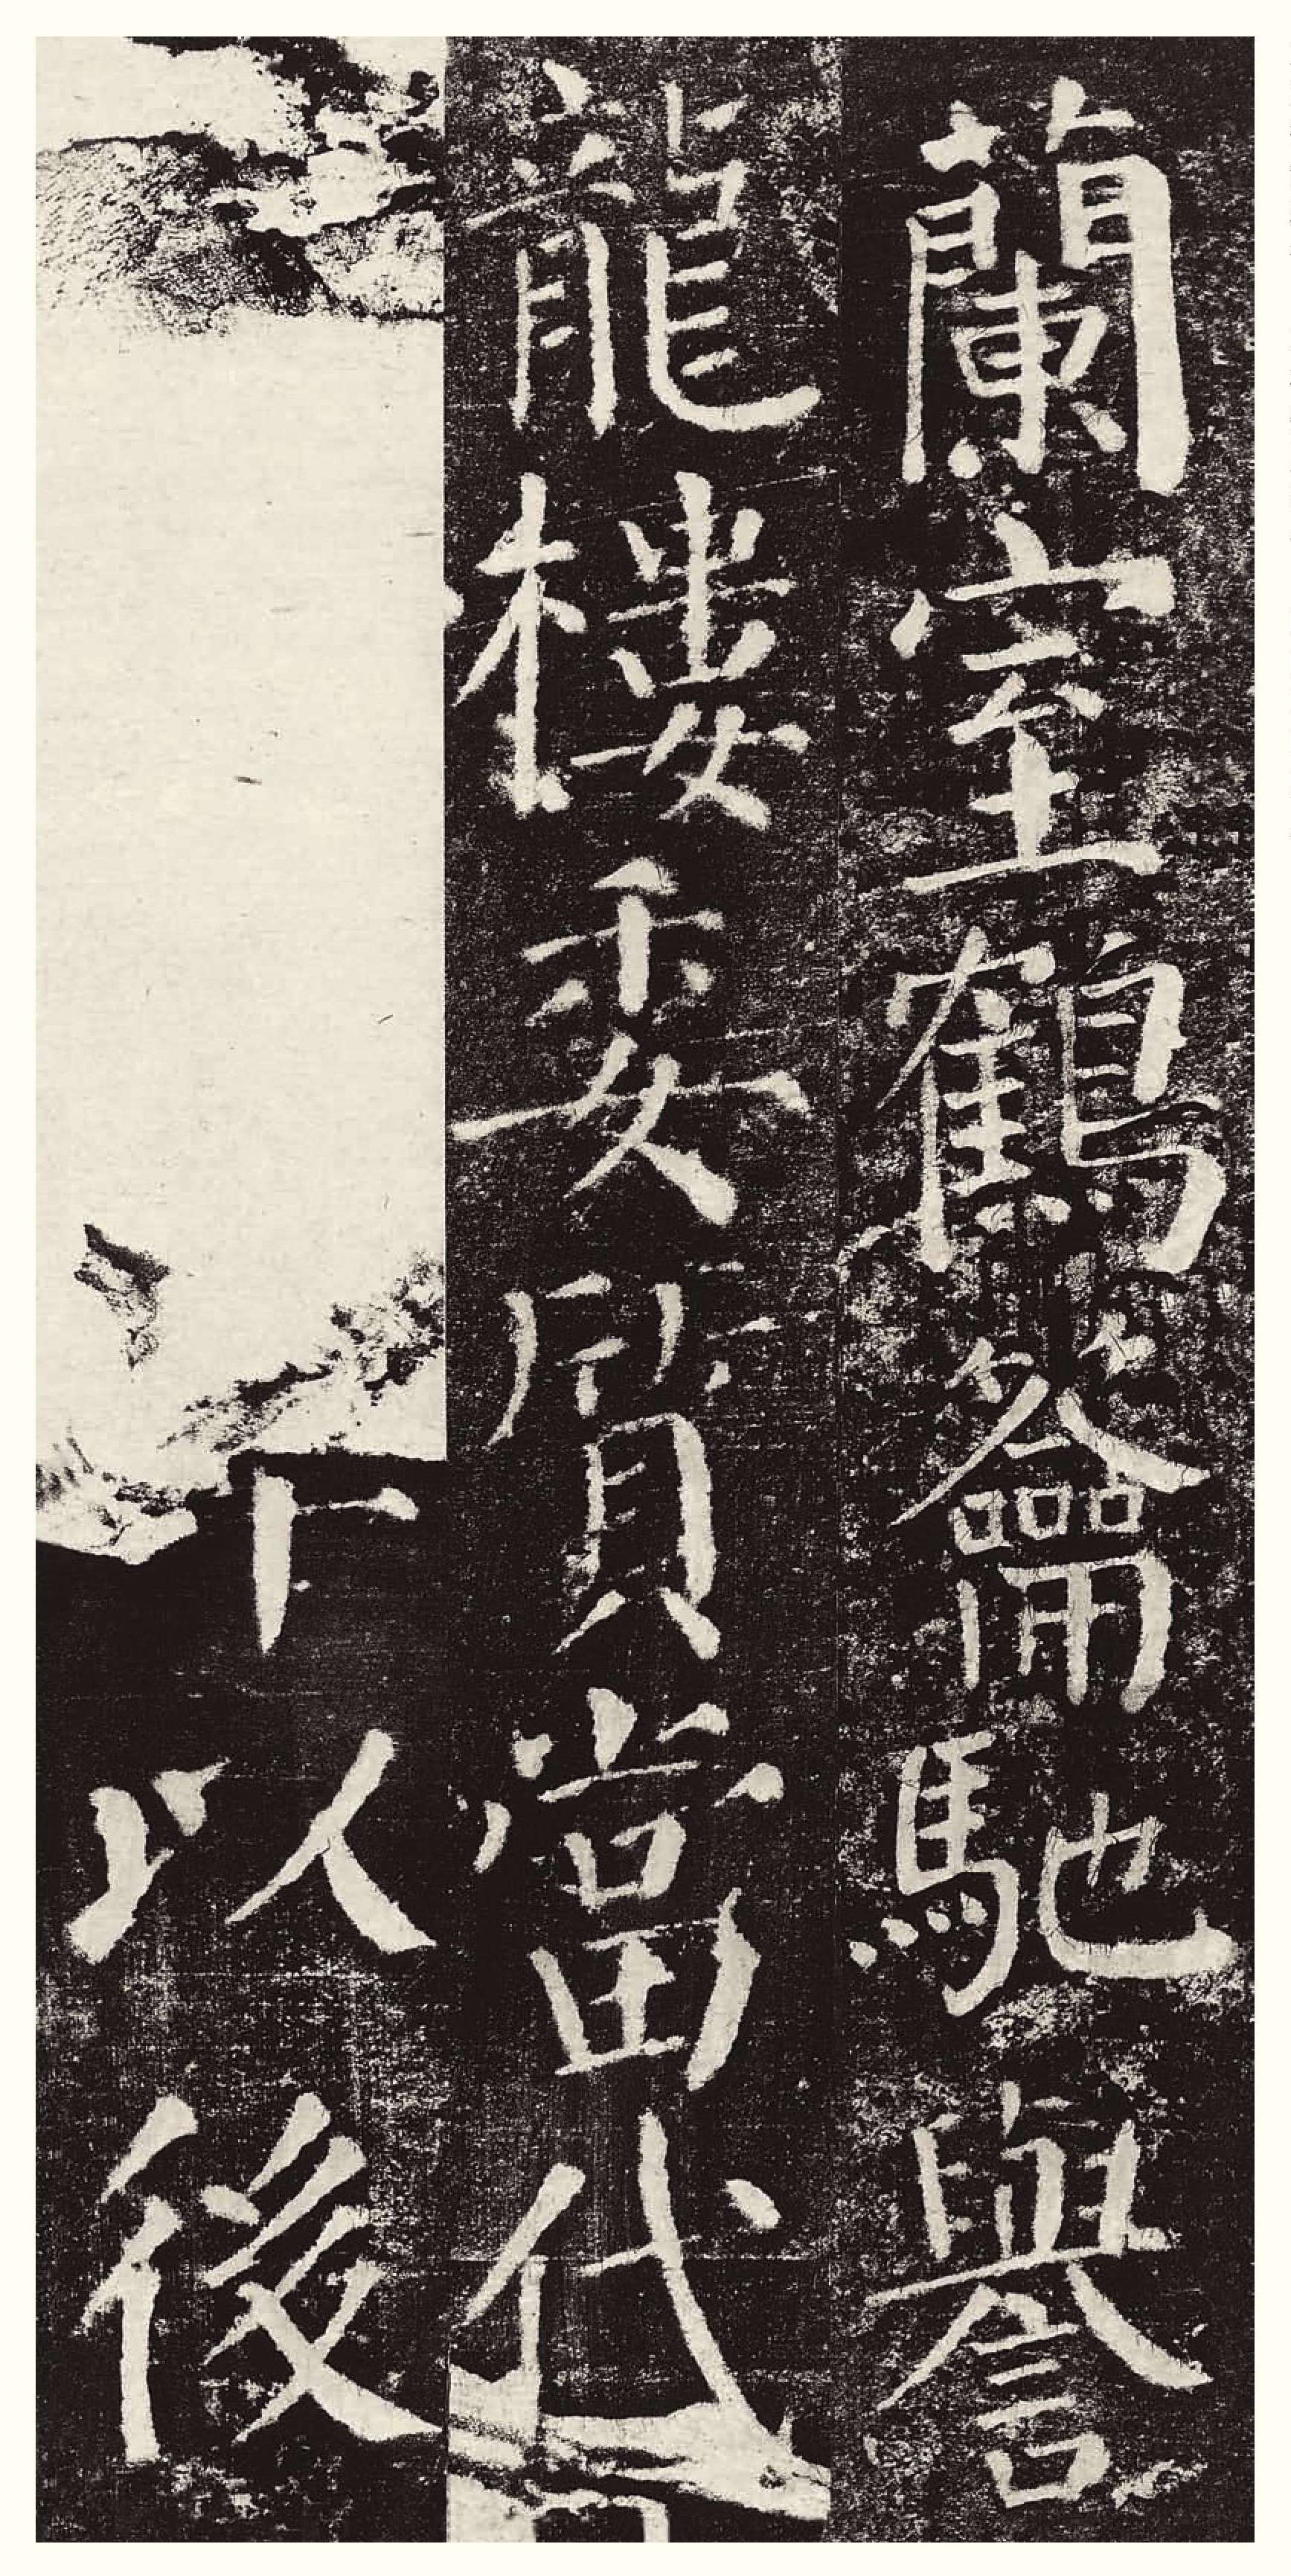 蘭室鶴龠馳譽
龍樓委質當代
以後